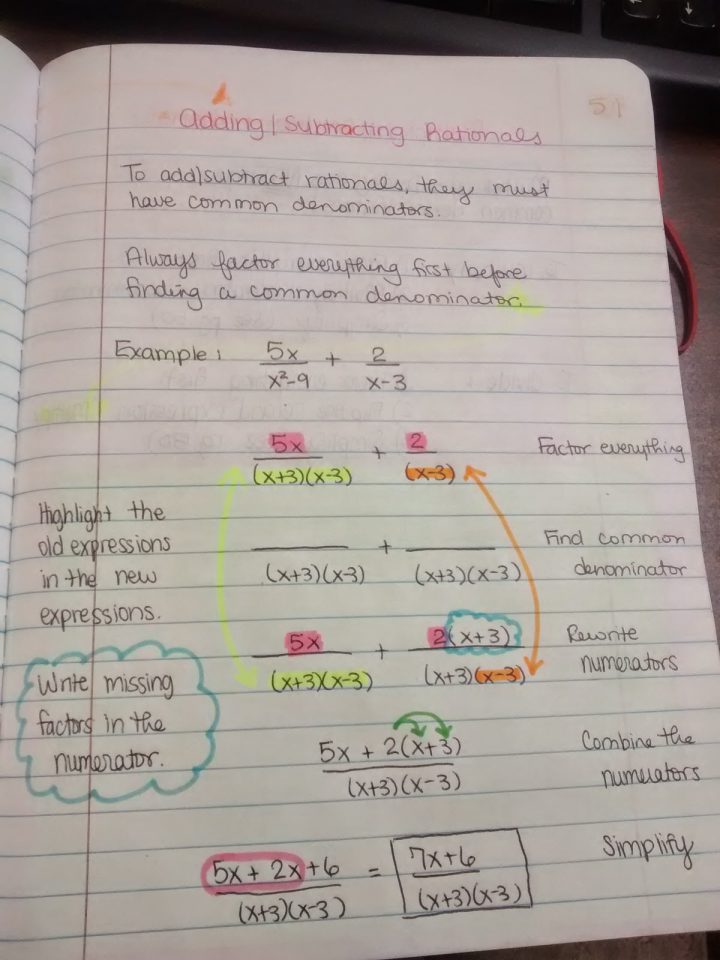 51
Adding/Subtracting Rationals
To add/subtract rationals, they must
have common denominators.
Always factor everything first before
finding a common denominator.
Example: 5x/(x²-9) + 2/(x-3)
5x/((x+3)(x-3)) + 2/(x-3) Factor everything
Highlight the
old expressions
in the new
expressions.
__/((x+3)(x-3)) + __/((x+3)(x-3)) Find common
denominator
5x/((x+3)(x-3)) + 2(x+3)/((x+3)(x-3)) Rewrite
numerators
Write missing
factors in the
numerator.
(5x + 2(x+3))/((x+3)(x-3)) Combine the
numerators
(5x + 2x+6)/((x+3)(x-3)) = (7x+6)/((x+3)(x-3)) Simplify